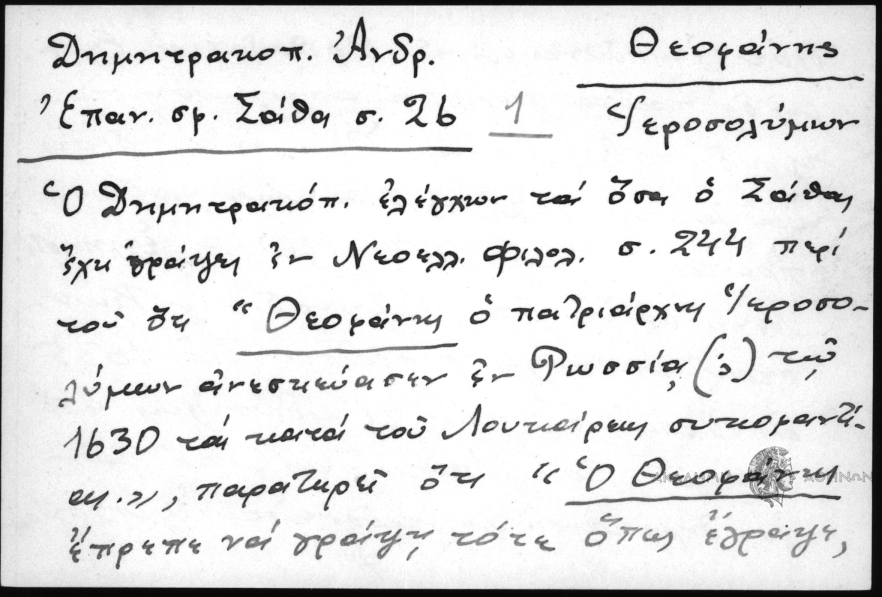 Δημητρακοπ. Ἀνδρ.
Θεοφάνης
Ἐπαν. σρ. Σάθα σ. 26
1
Ἱεροσολύμων
Ὁ Δημητρακόπ. ἐλέγχων τὰ ὅσα ὁ Σάθας
ἔχει γράψει ἐν Νεοελλ. Φιλολ. σ. 244 περὶ
τοῦ ὅτι "Θεοφάνης ὁ πατριάρχης Ἱεροσο-
λύμων ἀνεσκεύασεν ἐν Ρωσσίᾳ (ὁ) τῷ
1630 τὰ κατὰ τοῦ Λουκάρεως συκοφαντί-
», παρατηρεῖ ὅτι «Ὁ Θεοφάνης
ἔπρεπε νὰ γράψῃ τότε ὅπως ἔγραψε,